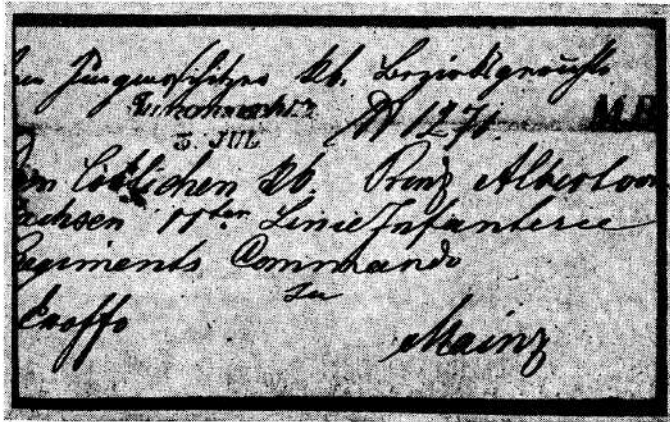 Jungwoschitzer kk. Bezirksgerichte
N 1271.
3. JUL
Löblichen kk. Prinz Albert von
Sachsen 11ten Linie Infanterie
Regiments Commando
zu
exoffo
Mainz